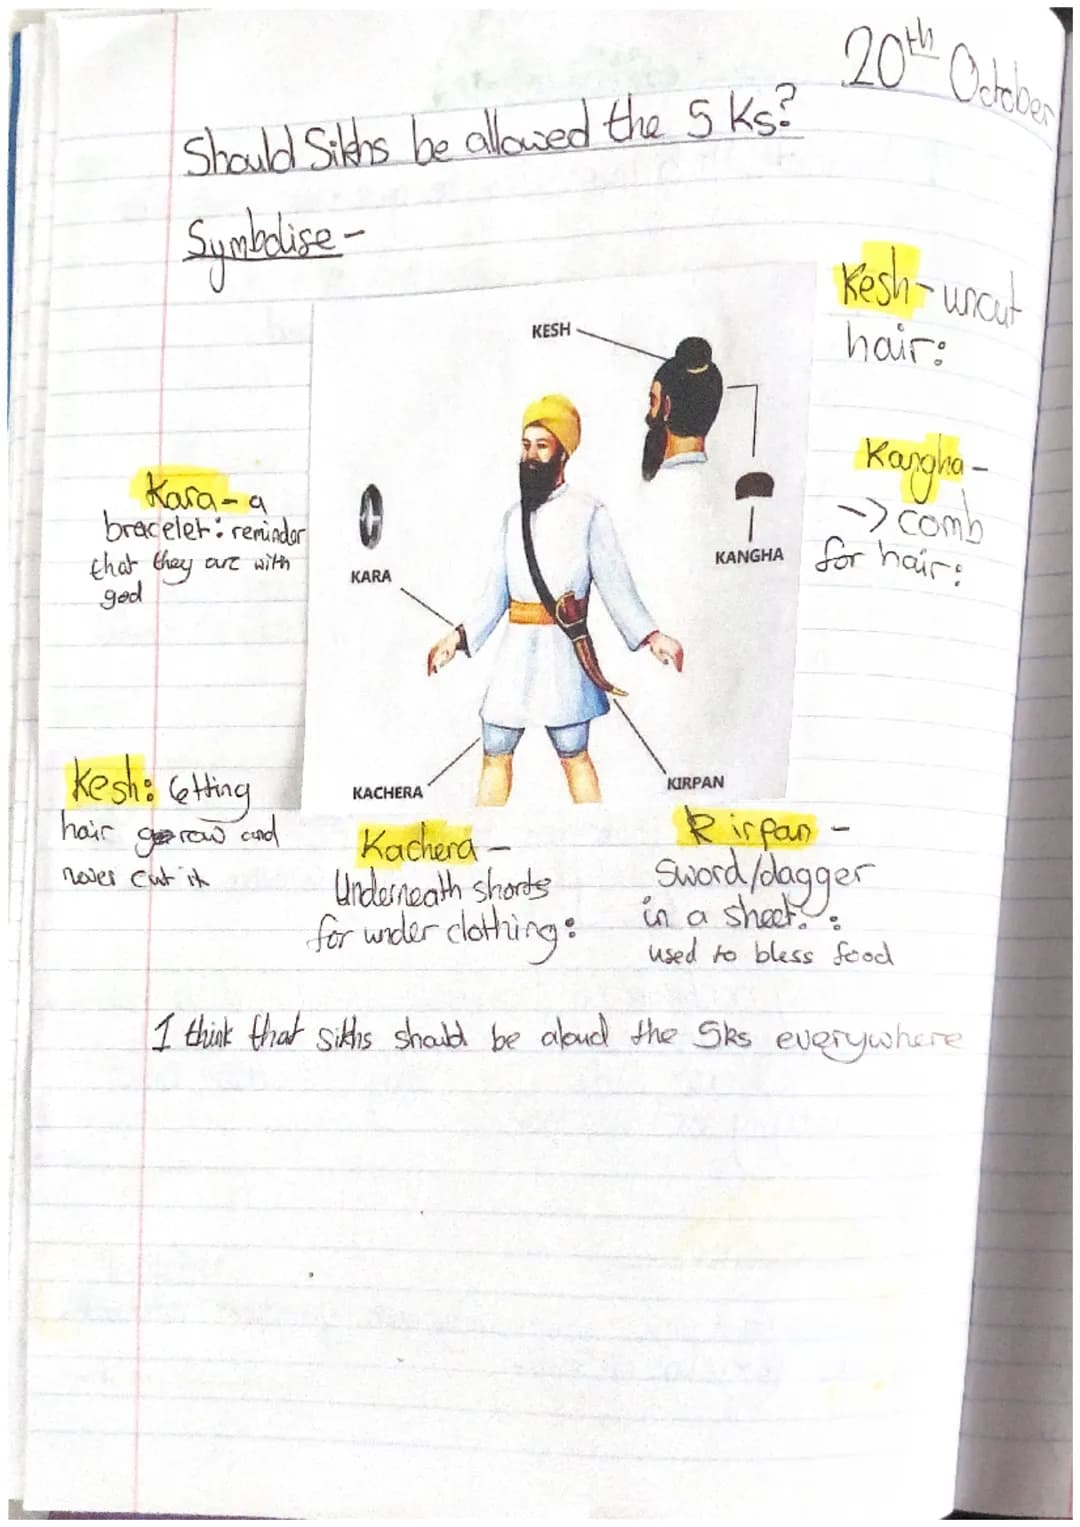 20th October
Should Sikhs be allowed the 5 Ks?
Symbolise -
Kesh - uncut
hair:
KESH
Kangha -
-> comb
for hair:
KANGHA
Kara - a
bracelet: reminder
that they are with
god
KARA
Kesh: letting
hair grow and
never cut it
KACHERA
KIRPAN
Kachera -
Underneath shorts
for under clothing:
Kirpan -
Sword/dagger
in a sheet. :
used to bless food
I think that sikhs should be aloud the 5ks everywhere